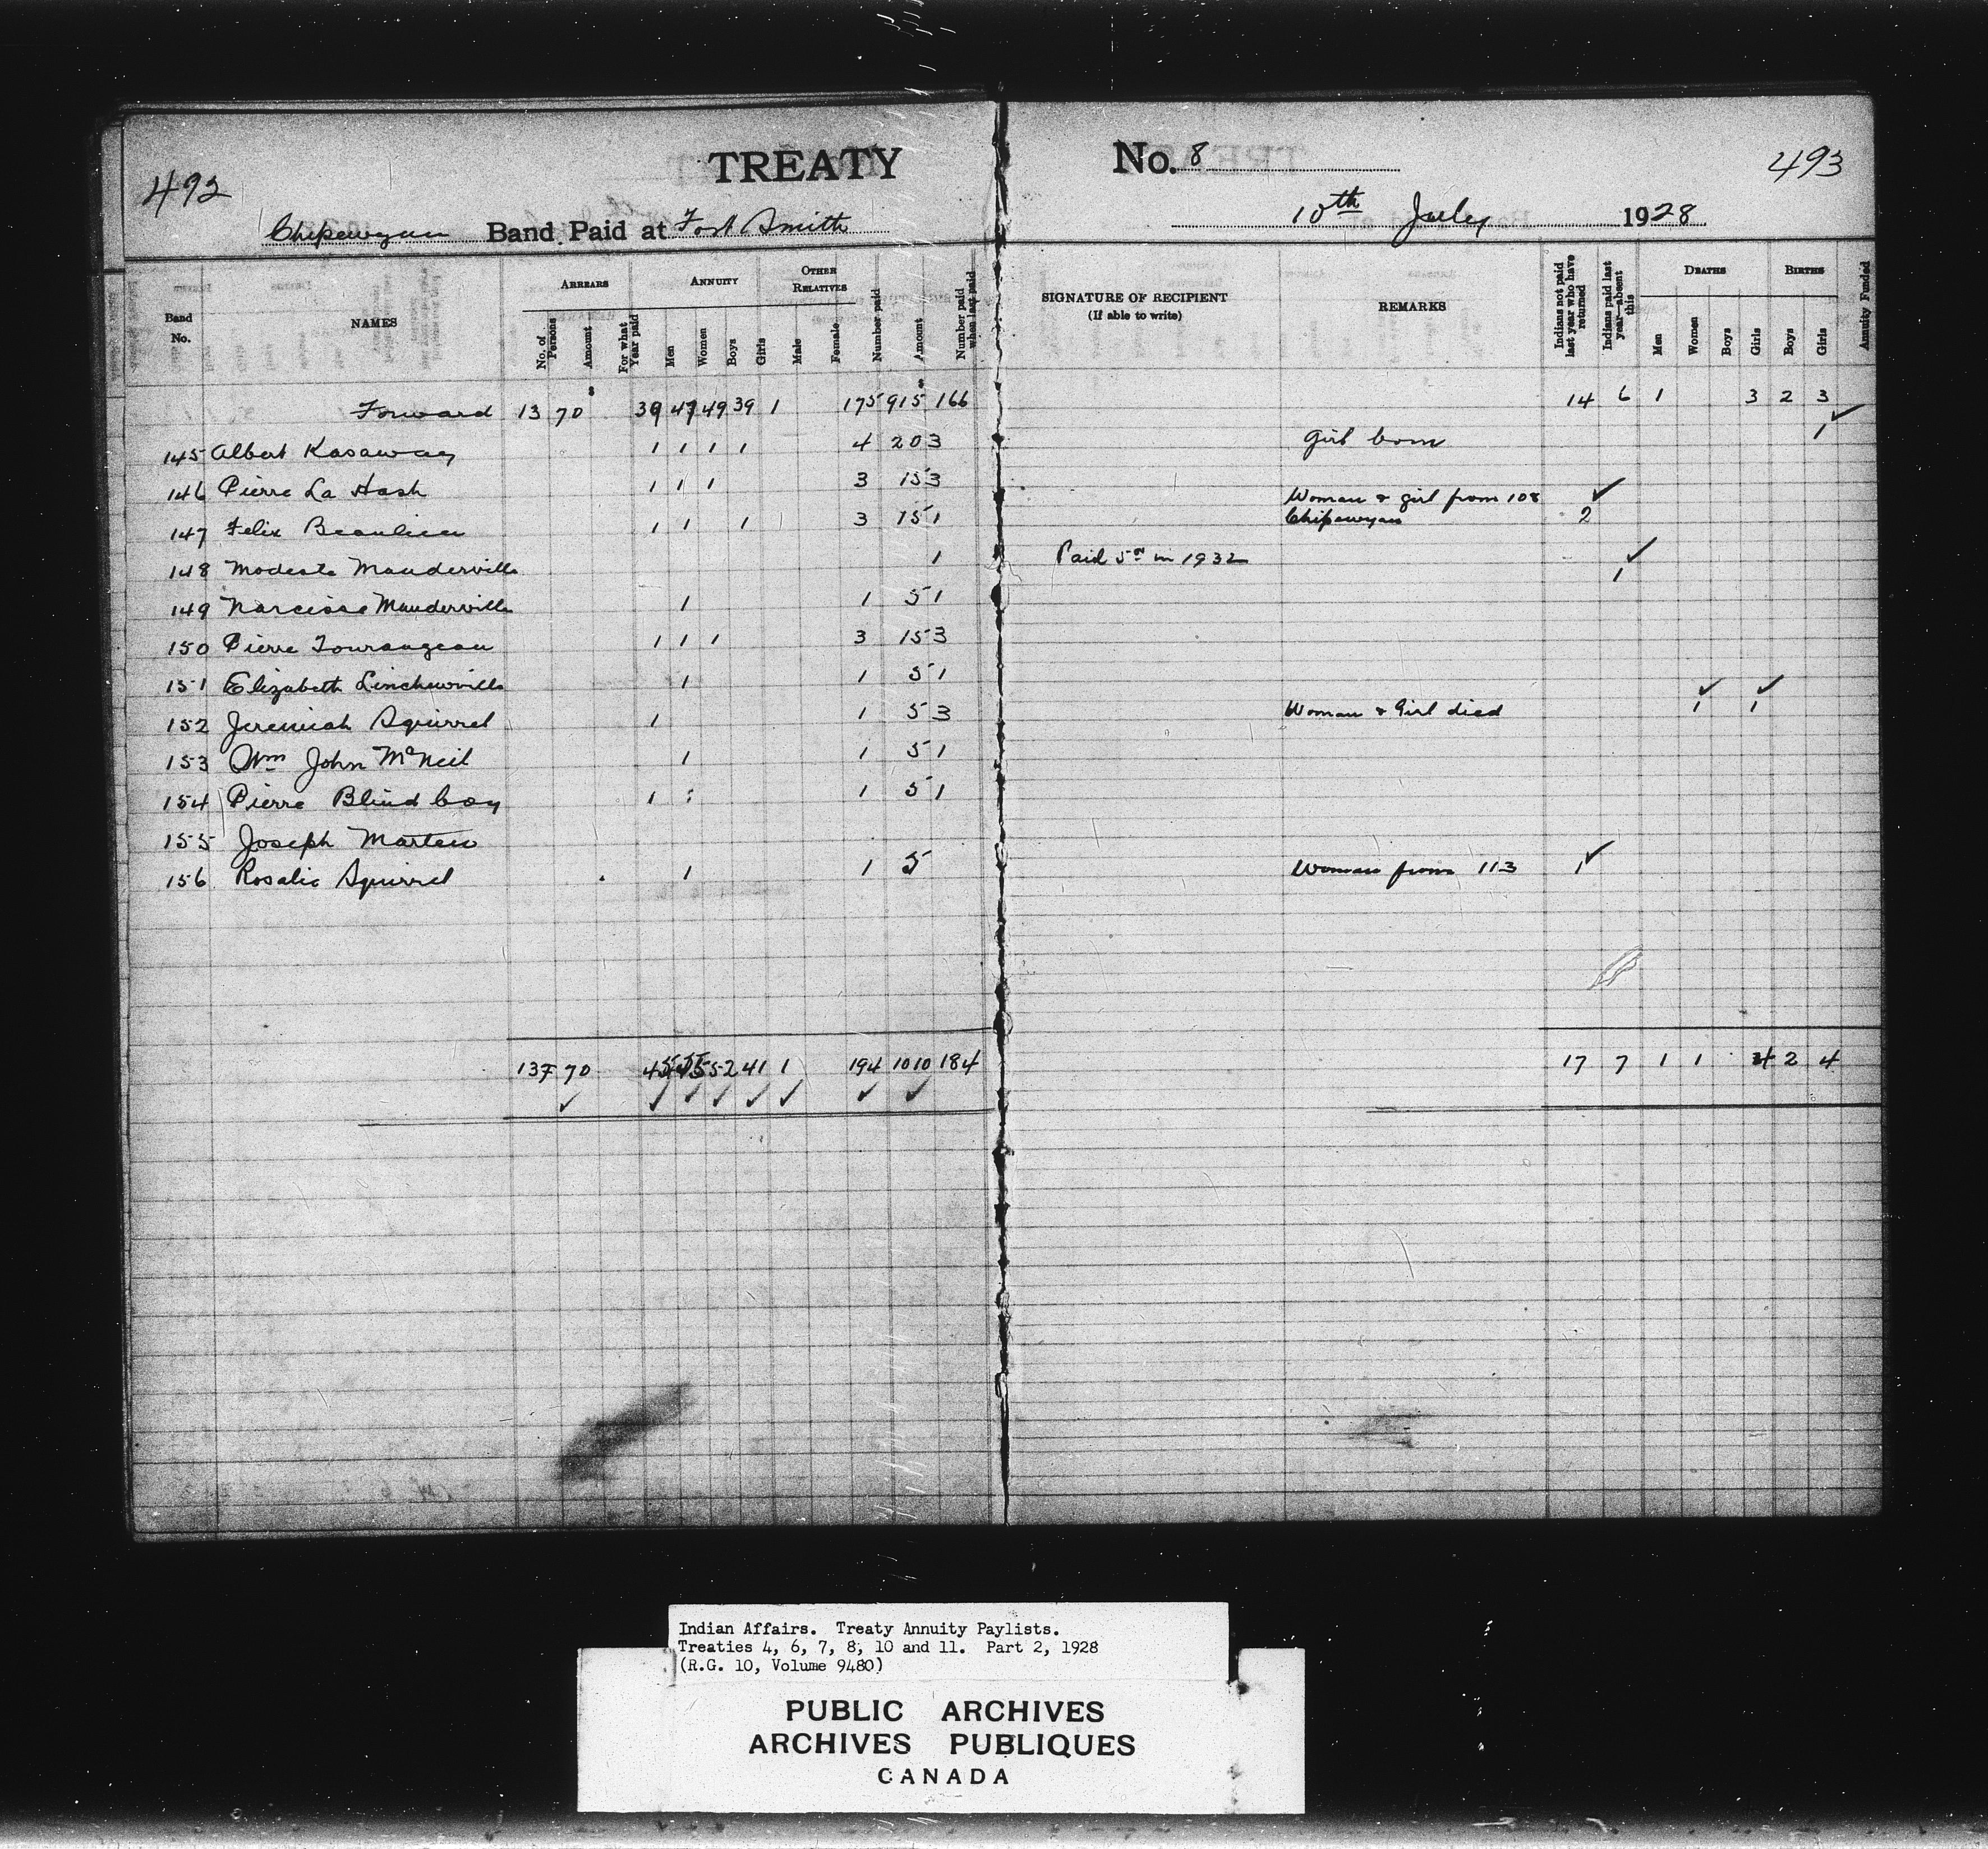 492
TREATY No. 8
493
Chipewyan Band Paid at Fort Smith 10th July 1928
Band No. NAMES ARREARS ANNUITY OTHER RELATIVES SIGNATURE OF RECIPIENT (If able to write) REMARKS DEATHS BIRTHS
No. of Persons Amount For what Year paid Men Women Boys Girls Male Female Number paid Amount Number paid when last paid Indians not paid last year who have returned Indians paid last year—absent this Men Women Boys Girls Boys Girls Annuity Funded
Forward 13 70 $ 39 47 49 39 1 175 $ 915 166 14 6 1 3 2 3
145 Albert Kasaway 1 1 1 1 4 20 3 Girl born 1 ✓
146 Pierre La Hash 1 1 1 3 15 3
147 Felix Beaulieu 1 1 1 3 15 1 Woman & girl from 108 Chipewyan 2 ✓
148 Modeste Manderville 1 Paid 5.00 in 1932 1 ✓
149 Narcisse Manderville 1 1 5 1
150 Pierre Tourangeau 1 1 1 3 15 3
151 Elizabeth 1 1 5 1
152 Jeremiah Squirrel 1 1 5 3 Woman & Girl died 1 ✓ 1 ✓
153 Wm John McNeil 1 1 5 1
154 Pierre Blind boy 1 1 5 1
155 Joseph Marten
156 Rosalie Squirrel 1 1 5 Woman from 113 1 ✓
13 70 52 41 1 194 1010 184 17 7 1 1 4 2 4
✓ ✓ ✓ ✓ ✓ ✓ ✓ ✓
Indian Affairs. Treaty Annuity Paylists.
Treaties 4, 6, 7, 8, 10 and 11. Part 2, 1928
(R.G. 10, Volume 9480)
PUBLIC ARCHIVES
ARCHIVES PUBLIQUES
CANADA